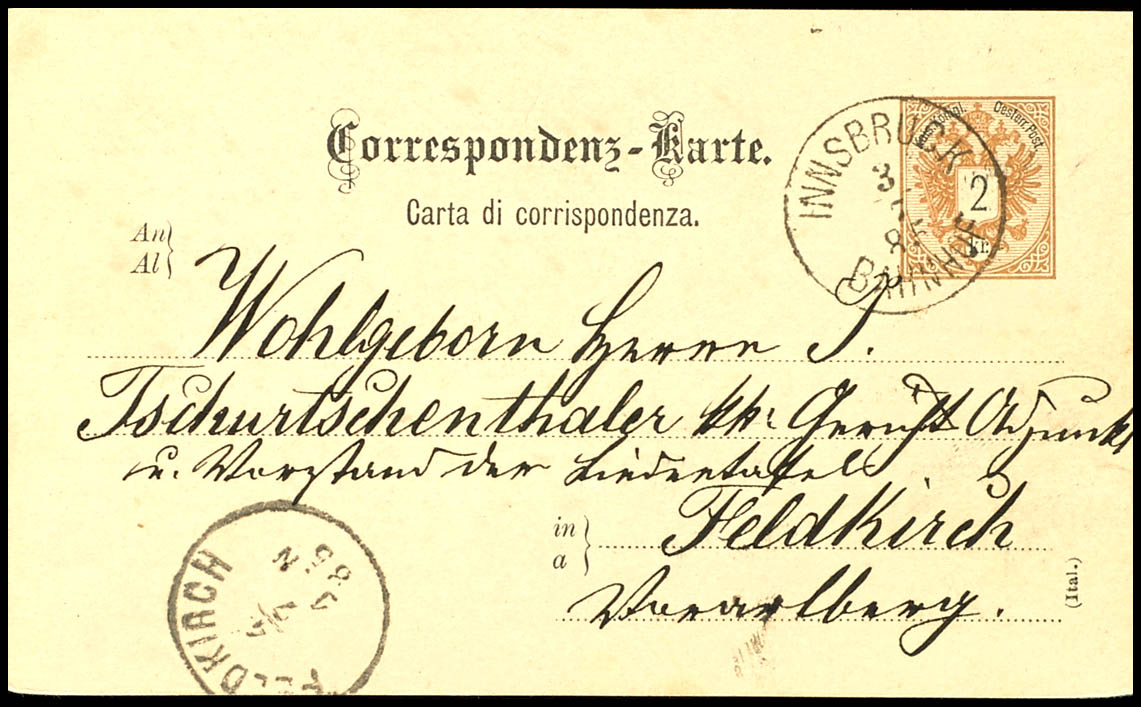 Correspondenz-Karte.
Carta di corrispondenza.
INNSBRUCK
3
8
BAHNHOF
Kais. Königl. Oesterr. Post.
2
kr.
An
Al
Wohlgeborn Herrn J.
Tschurtschenthaler kk. Gerichts Adjunkt
u. Vorstand der Liedertafel
in
a
Feldkirch
Vorarlberg.
(Ital.)
FELDKIRCH
85
N